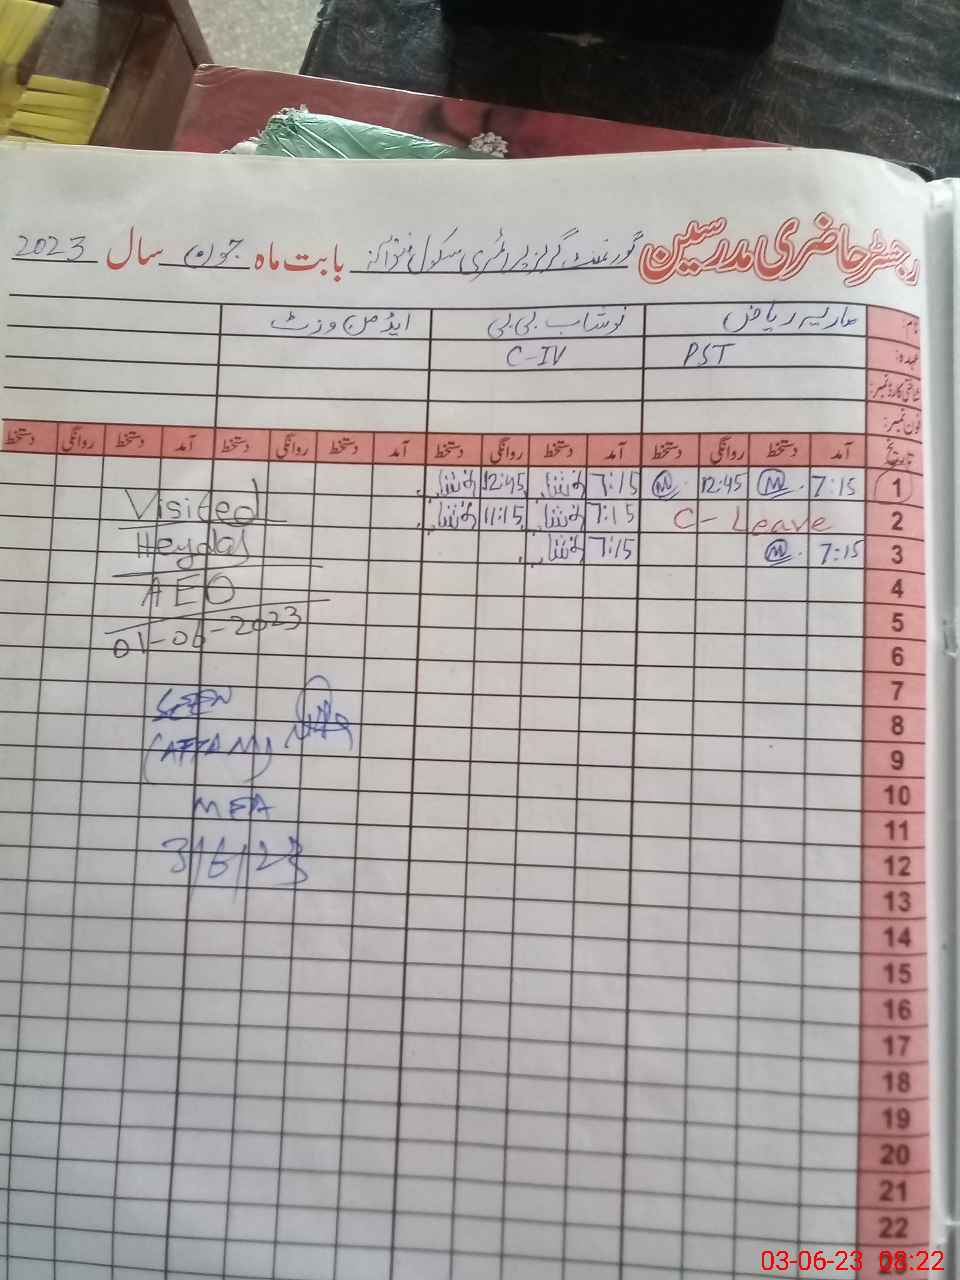 رجسٹر حاضری مدرسین گورنمنٹ گرلز پرائمری سکول بابت ماہ جون سال 2023
نام: ماریہ ریاض نوشاب بی بی ایڈمن وزٹ
عہدہ: PST C-IV
شناختی کارڈ نمبر:
فون نمبر:
تاریخ آمد دستخط روانگی دستخط آمد دستخط روانگی دستخط آمد دستخط روانگی دستخط آمد دستخط روانگی دستخط
1 7:15 M 12:45 M 7:15 نوشاب 12:45 نوشاب
2 C-Leave 7:15 نوشاب 11:15 نوشاب
3 7:15 M 7:15 نوشاب
4
5
6
7
8
9
10
11
12
13
14
15
16
17
18
19
20
21
22
23
Visited
AEO
01-06-2023
SEEN
MEA
3/6/23
03-06-23 08:22